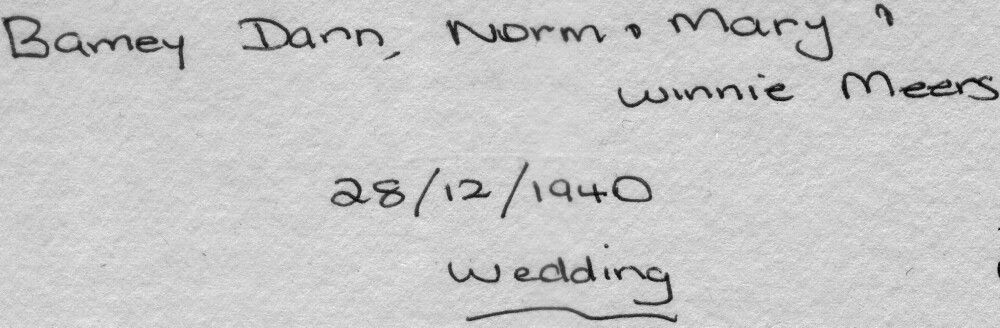 Barney Dann, Norm & Mary &
Winnie Meers
28/12/1940
Wedding